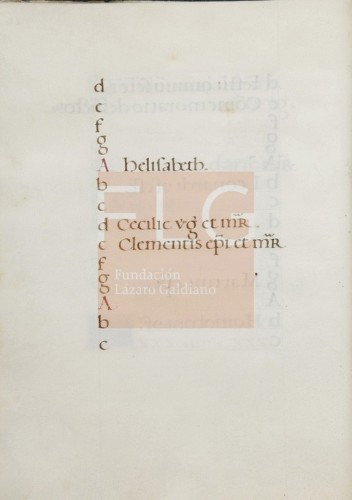 d
e
f
g
A Helisabeth.
b
c
d Cecilie vg̃ et mr̃
e Clementis ep̃i et mr̃
f
g
A
b
c
FLG
Fundación
Lázaro Galdiano